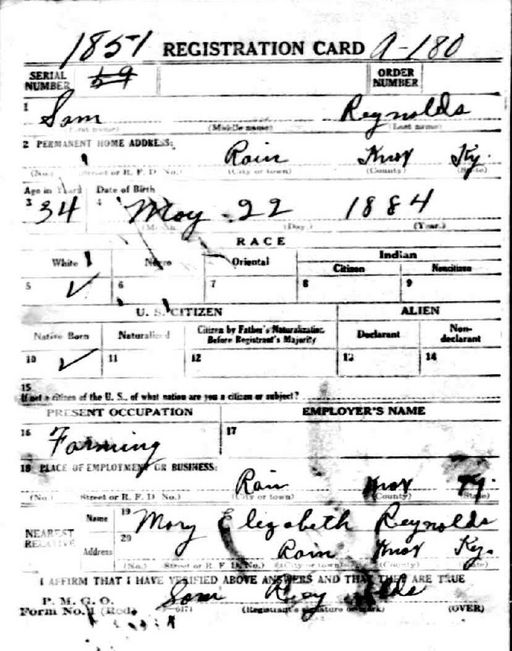 1851 REGISTRATION CARD A-180
SERIAL NUMBER 59 ORDER NUMBER
1 Sam Reynolds
(First name) (Middle name) (Last name)
2 PERMANENT HOME ADDRESS:
Rain Knox Ky.
(No.) (Street or R. F. D. No.) (City or town) (County) (State)
Age in Years Date of Birth
3 34 4 May 22 1884
(Month.) (Day.) (Year.)
RACE
White Negro Oriental Indian
Citizen Noncitizen
5 ✓ 6 7 8 9
U. S. CITIZEN ALIEN
Native Born Naturalized Citizen by Father's Naturalization Before Registrant's Majority Declarant Non-declarant
10 ✓ 11 12 13 14
15
If not a citizen of the U. S., of what nation are you a citizen or subject?
PRESENT OCCUPATION EMPLOYER'S NAME
16 Farming 17
18 PLACE OF EMPLOYMENT OR BUSINESS:
Rain Knox Ky.
(No.) (Street or R. F. D. No.) (City or town) (County) (State)
NEAREST RELATIVE Name 19 Mary Elezabeth Reynolds
Address 20 Rain Knox Ky.
(No.) (Street or R. F. D. No.) (City or town) (County) (State)
I AFFIRM THAT I HAVE VERIFIED ABOVE ANSWERS AND THAT THEY ARE TRUE
P. M. G. O.
Form No. 1 (Red) Sam Reynolds
(Registrant's signature or mark) (OVER)